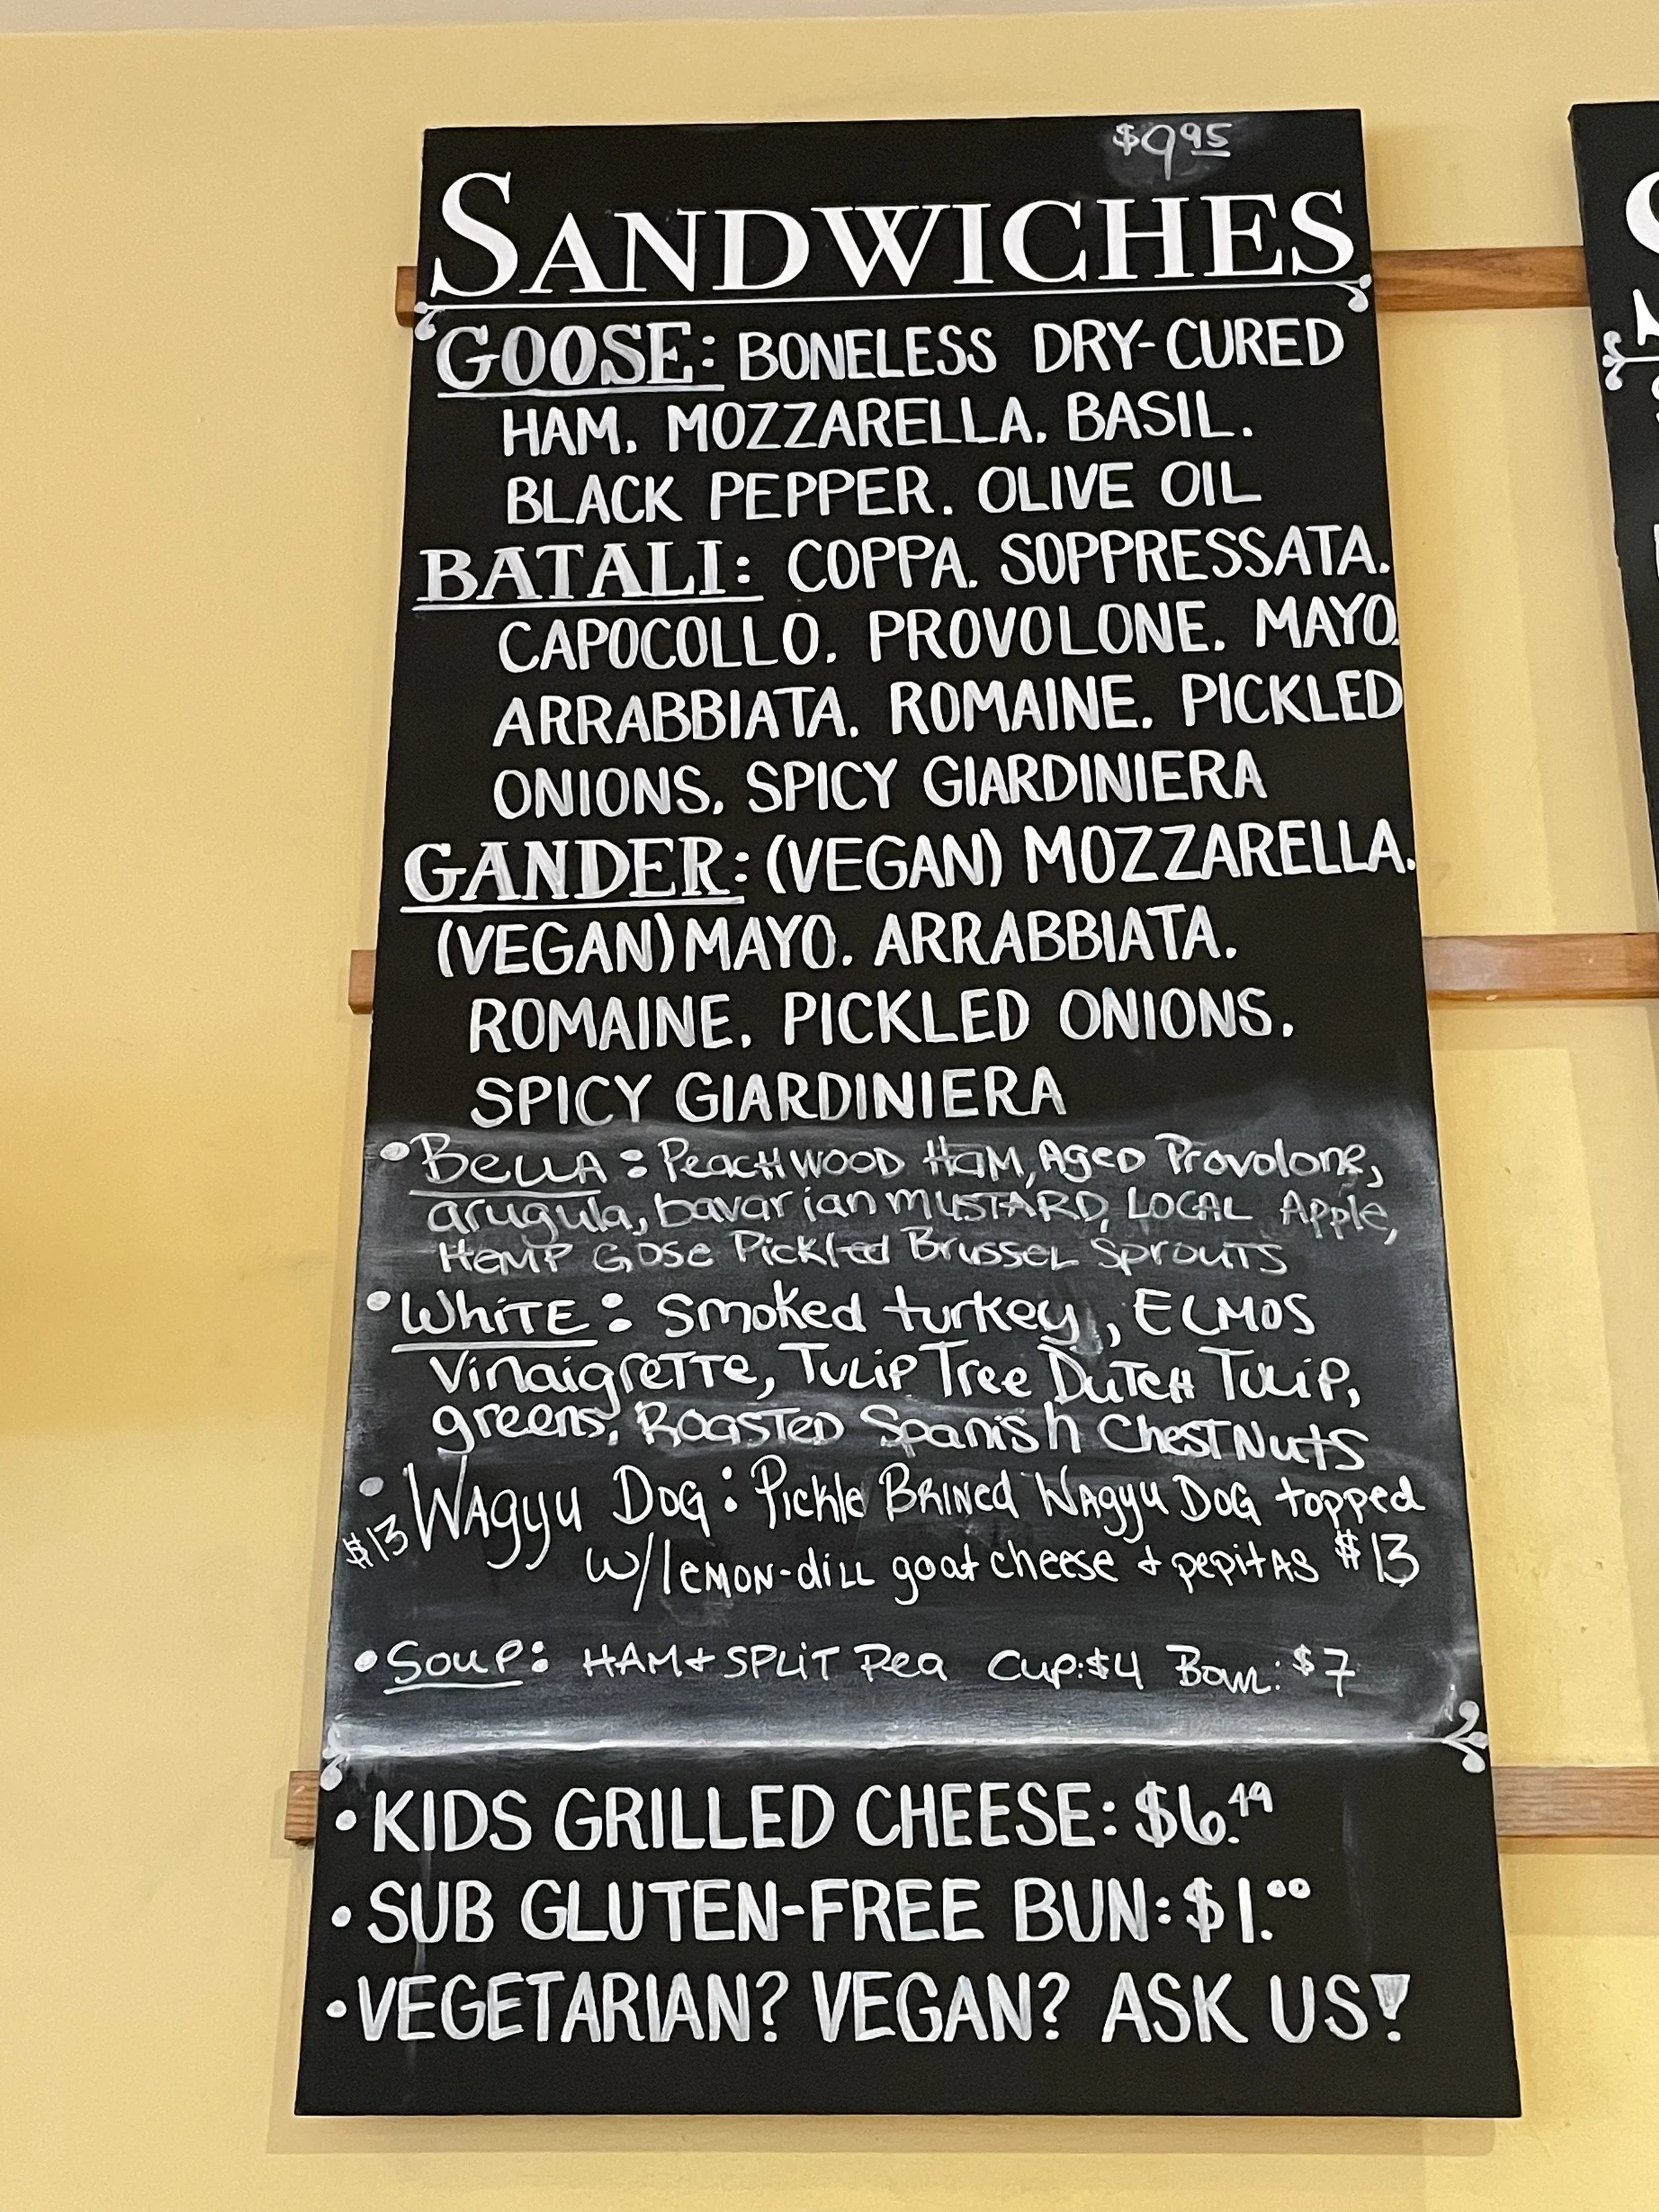 $9.95
SANDWICHES
GOOSE: BONELESS DRY-CURED
HAM. MOZZARELLA. BASIL.
BLACK PEPPER. OLIVE OIL
BATALI: COPPA. SOPPRESSATA.
CAPOCOLLO. PROVOLONE. MAYO.
ARRABBIATA. ROMAINE. PICKLED
ONIONS. SPICY GIARDINIERA
GANDER: (VEGAN) MOZZARELLA.
(VEGAN) MAYO. ARRABBIATA.
ROMAINE. PICKLED ONIONS.
SPICY GIARDINIERA
• Bella: Peachwood Ham, Aged Provolone,
arugula, bavarian MUSTARD, LOCAL Apple,
HEMP GOSE Pickled Brussel Sprouts
• White: Smoked turkey, ELMOS
Vinaigrette, Tulip Tree Dutch Tulip,
greens, Roasted Spanish Chestnuts
• $13 Wagyu Dog: Pickle Brined Wagyu Dog topped
w/lemon-dill goat cheese + pepitas $13
• Soup: HAM + SPLIT Pea Cup: $4 Bowl: $7
• KIDS GRILLED CHEESE: $6.49
• SUB GLUTEN-FREE BUN: $1.00
• VEGETARIAN? VEGAN? ASK US!